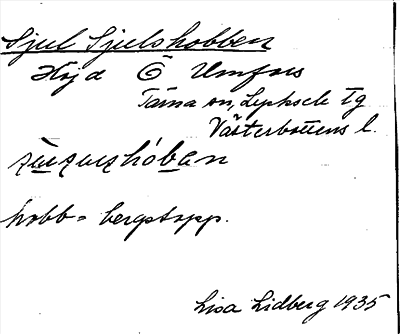 Sjul Sjulshobben
Höjd Ö Umfors
Tärna sn, Lycksele tg
Västerbottens l.
hobb = bergstopp.
Lisa Lidberg 1935